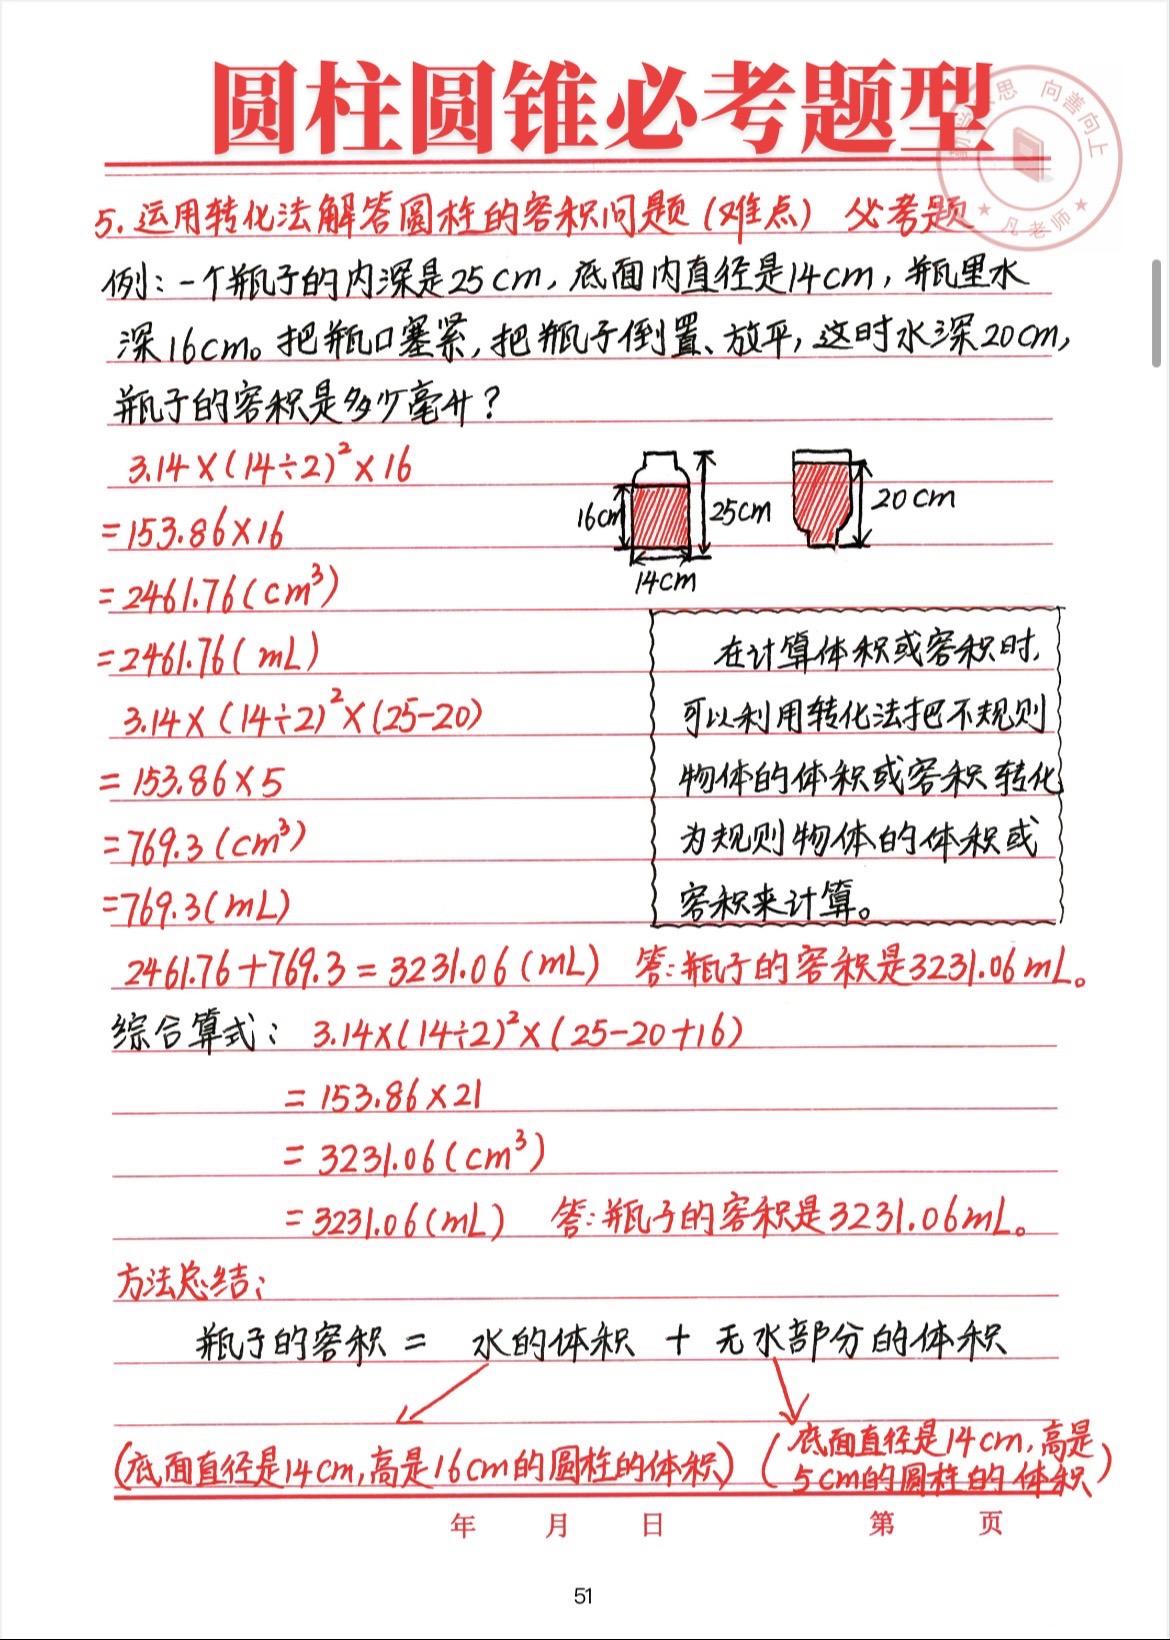 圆柱圆锥必考题型
思 向善向上
凡老师
5.运用转化法解答圆柱的容积问题(难点) 必考题
例:一个瓶子的内深是25cm,底面内直径是14cm,瓶里水
深16cm。把瓶口塞紧,把瓶子倒置、放平,这时水深20cm,
瓶子的容积是多少毫升?
3.14×(14÷2)²×16
=153.86×16
=2461.76(cm³)
=2461.76(mL)
3.14×(14÷2)²×(25-20)
=153.86×5
=769.3(cm³)
=769.3(mL)
16cm
25cm
14cm
20cm
在计算体积或容积时,
可以利用转化法把不规则
物体的体积或容积转化
为规则物体的体积或
容积来计算。
2461.76+769.3=3231.06(mL) 答:瓶子的容积是3231.06mL。
综合算式: 3.14×(14÷2)²×(25-20+16)
=153.86×21
=3231.06(cm³)
=3231.06(mL) 答:瓶子的容积是3231.06mL。
方法总结:
瓶子的容积 = 水的体积 + 无水部分的体积
(底面直径是14cm,高是16cm的圆柱的体积)
(底面直径是14cm,高是
5cm的圆柱的体积)
年 月 日 第 页
51